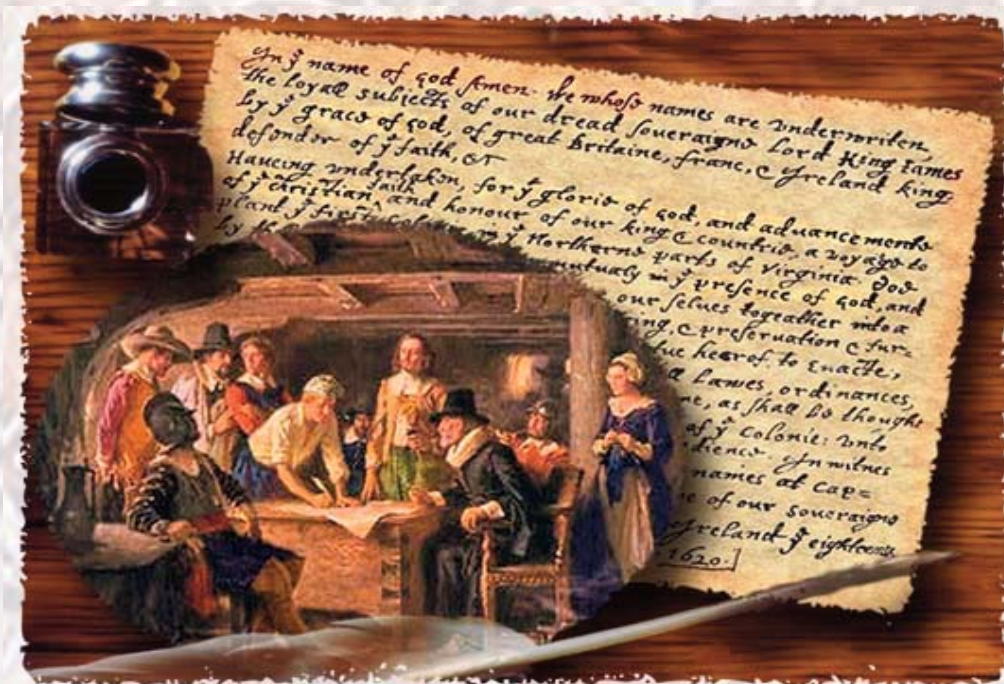 In yͤ name of god Amen. We whose names are underwriten,
the loyall subjects of our dread soveraigne Lord King James
by yͤ grace of god, of great Britaine, franc, & Ireland king,
defender of yͤ faith, &c
Haveing undertaken, for yͤ glorie of god, and advancemente
of yͤ christian faith and honour of our king & countrie, a voyage to
plant yͤ first colonie in yͤ Northerne parts of Virginia. doe
by the mutualy in yͤ presence of god, and
our selves togeather into a
ing, & preservation & fur=
tue hearof to enacte,
lawes, ordinances,
as shall be thought
of yͤ Colonie: unto
dience. In witnes
names at Cap=
e of our soveraigne
Ireland yͤ eighteene
1620.